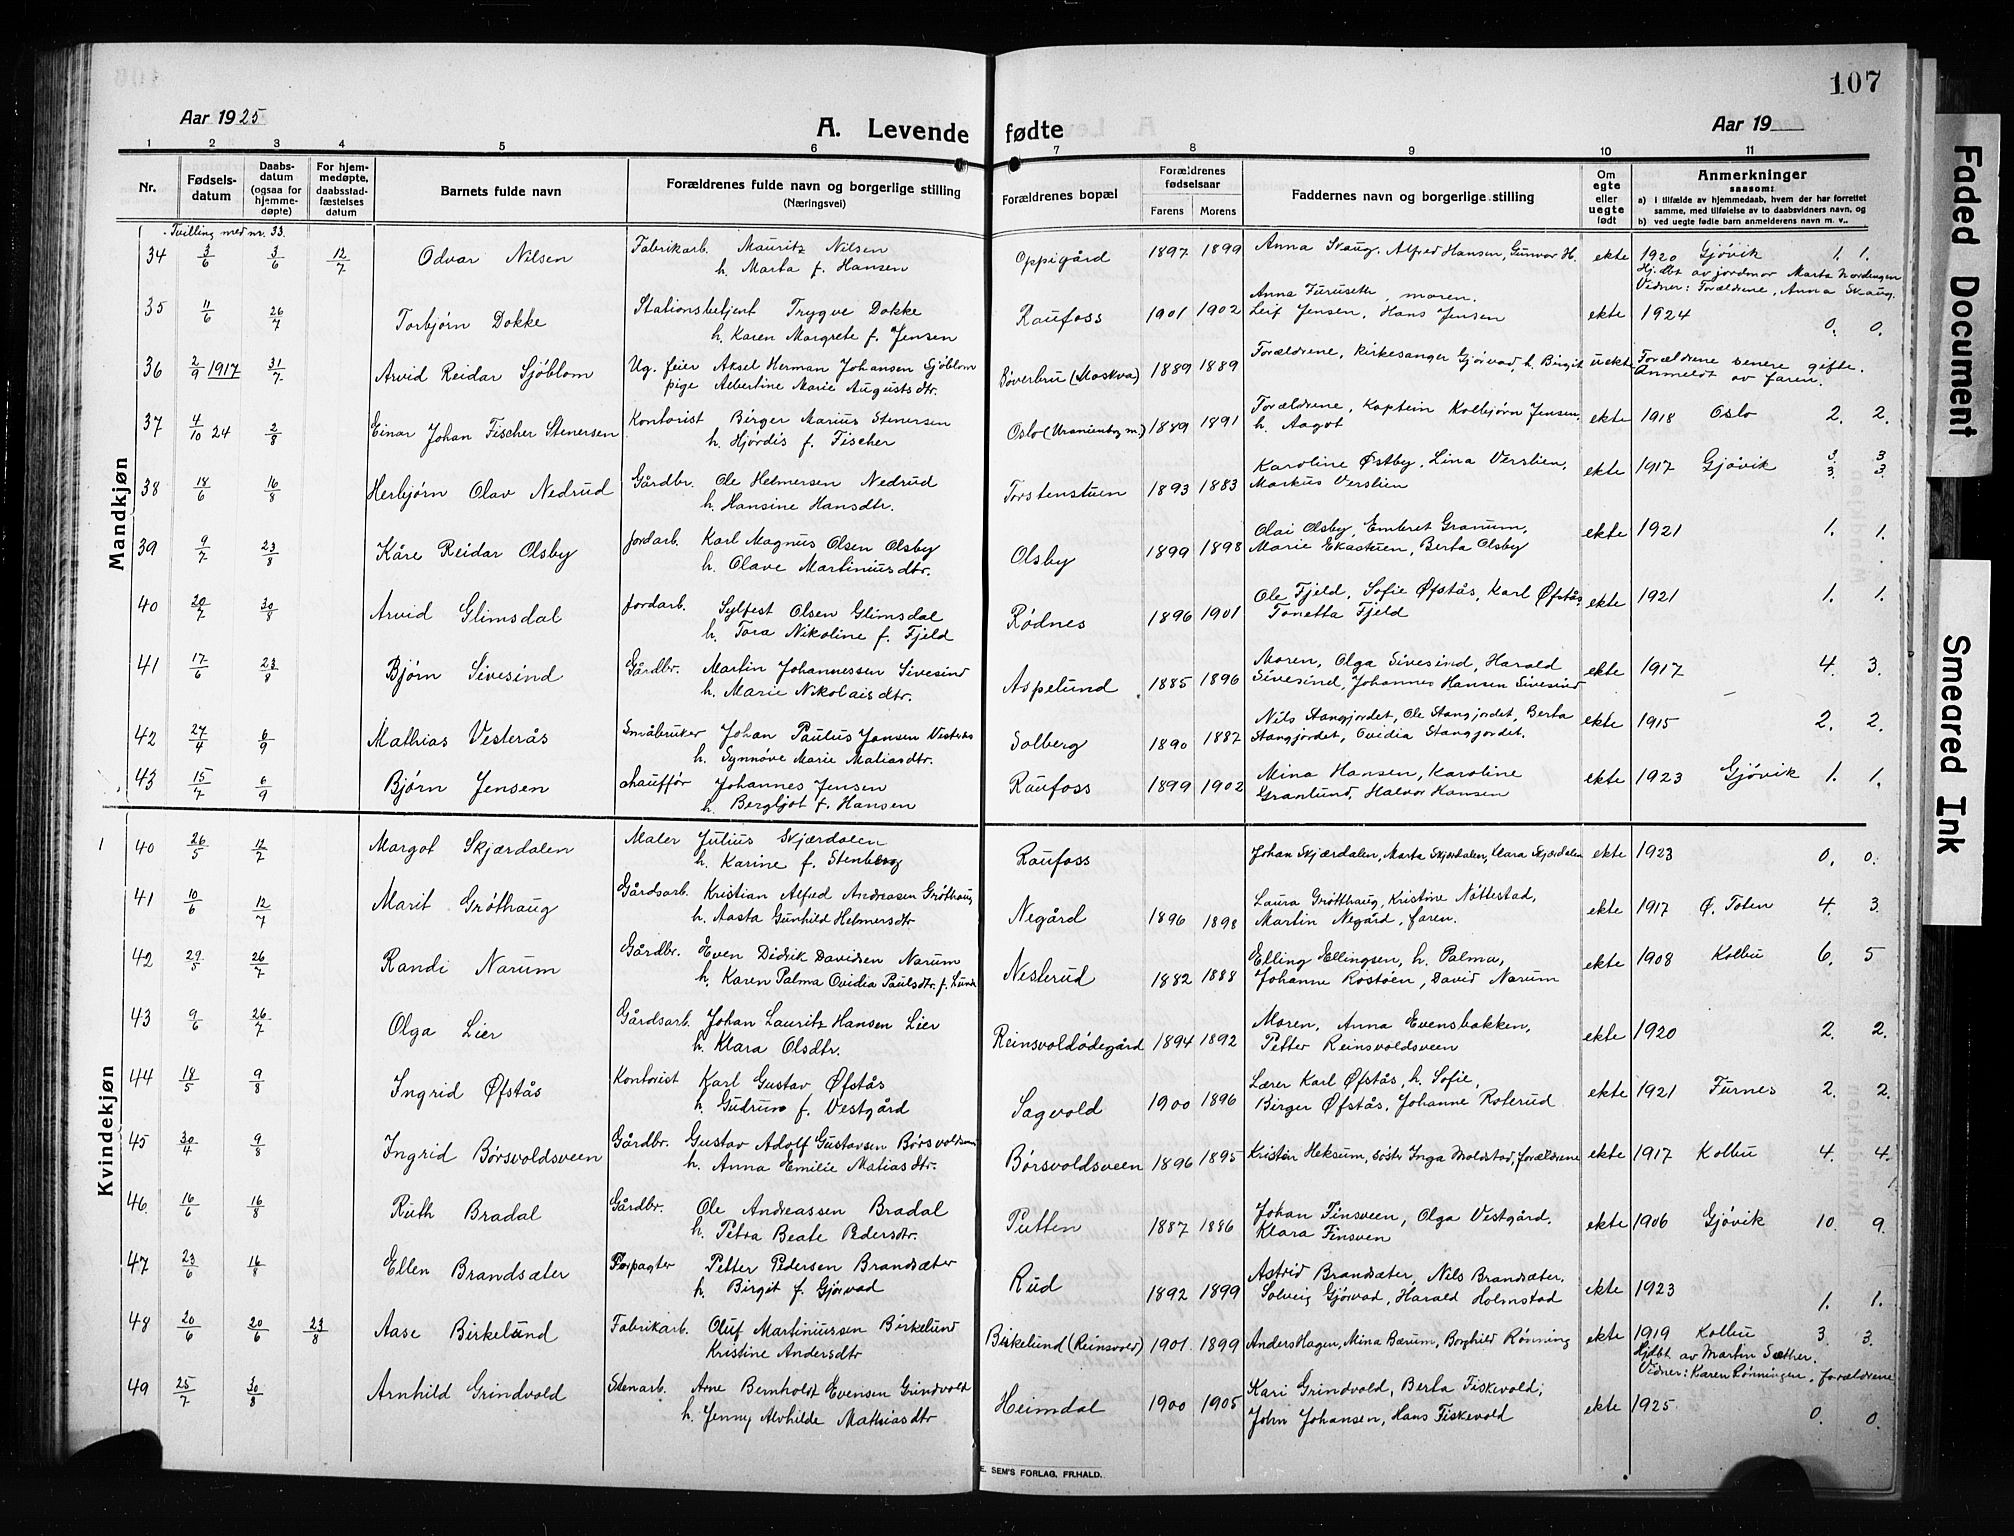 107
Aar 1925
A. Levende fødte
Aar 19
1 2 3 4 5 6 7 8 9 10 11
Nr. Fødsels-datum Daabs-datum (ogsaa for hjemme-døpte) For hjem-medøpte, daabsstad-fæstelses datum Barnets fulde navn Forældrenes fulde navn og borgerlige stilling (Næringsvei) Forældrenes bopæl Forældrenes fødselsaar Farens Morens Faddernes navn og borgerlige stilling Om egte eller uegte født Anmerkninger saasom:
a) i tilfælde av hjemmedaab, hvem der har forrettet samme, med tilføielse av to daabsvidners navn, og
b) ved uegte fødte barn anmelderens navn m. v..
Mandkjøn
Tvilling med nr. 33.
34 3/6 3/6 12/7 Odvar Nilsen Fabrikarb. Mauritz Nilsen Oppigård 1897 1899 Anna Skaug, Alfred Hansen, Gunvor H. ekte 1920 Gjøvik 1. 1.
h. Marta f. Hansen Hj.dbt av jordmor Marta Nordengen
Vidner: Forældrene, Anna Skaug.
35 11/6 26/7 Torbjørn Dokke Stationsbetjent Trygve Dokke Raufoss 1901 1902 Anna Furuseth, moren. ekte 1924 0. 0.
h. Karen Margrete f. Jensen Leif Jensen, Hans Jensen
36 2/9 1917 31/7 Arvid Reidar Sjöblom Ug. feier Aksel Herman Johansen Sjöblom Søverbru (Moskva) 1889 1889 Forældrene, Kirkesanger Gjørvad, h. Birgit uekte Forældrene senere gifte.
pige Albertine Marie Augustsdtr. Anmeldt av faren.
37 4/10 24 2/8 Einar Johan Fischer Stenersen Kontorist Birger Marius Stenersen Oslo (Uranienborg m.) 1889 1891 Forældrene, Kaptein Kolbjørn Jensen, ekte 1918 Oslo 2. 2.
h. Hjørdis f. Fischer h. Aagot
38 18/6 16/8 Herbjørn Olav Nedrud Gårdbr. Ole Helmersen Nedrud Torstenstuen 1893 1883 Karoline Østby, Lina Verslien, ekte 1917 Gjøvik 3 3
h. Hansine Hansdtr. Markus Verslien 3. 3.
39 9/7 23/8 Kåre Reidar Olsby Jordarb. Karl Magnus Olsen Olsby Olsby 1899 1898 Olai Olsby, Embret Granum, ekte 1921 1. 1.
h. Olave Martiniusdtr. Marie Ekastuen, Berta Olsby
40 20/7 30/8 Arvid Glimsdal Jordarb. Sylfest Olsen Glimsdal Rødnes 1896 1901 Ole Fjeld, Sofie Øfstås, Karl Øfstås, ekte 1921 1. 1.
h. Tora Nikoline f. Fjeld Tonetta Fjeld
41 17/6 23/8 Bjørn Sivesind Gårdbr. Martin Johannessen Sivesind Aspelund 1885 1896 Moren, Olga Sivesind, Harald ekte 1917 4. 3.
h. Marie Nikolaisdtr. Sivesind, Johannes Hansen Sivesind
42 27/4 6/9 Mathias Vesterås Småbruker Johan Paulus Jonsen Vesterås Solberg 1890 1887 Nils Stangjordet, Ole Stangjordet, Berta ekte 1915 2. 2.
h. Synnøve Marie Matiasdtr. Stangjordet, Ovidia Stangjordet.
43 15/7 6/9 Bjørn Jensen Chauffør Johannes Jensen Raufoss 1899 1902 Mina Hansen, Karoline ekte 1923 Gjøvik 1. 1.
h. Bergljot f. Hansen Granlund, Halvor Hansen
Kvindekjøn
40 26/5 12/7 Margot Skjærdalen Maler Julius Skjærdalen Raufoss Johan Skjærdalen, Marta Skjærdalen, Klara Skjærdalen ekte 1923 0. 0.
h. Karine f. Stenberg
41 10/6 12/7 Marit Grøthaug Gårdsarb. Kristian Alfred Andreasen Grøthaug Negård 1896 1898 Laura Grøtthaug, Kristine Nøttestad, ekte 1917 Ø. Toten 4. 3.
h. Aasta Gunhild Helmersdtr. Martin Negård, faren.
42 29/5 26/7 Randi Narum Gårdbr. Even Didrik Davidsen Narum Nesterud 1882 1888 Elling Ellingsen, h. Palma, ekte 1908 Kolbu 6. 5
h. Karen Palma Ovidia Paulsdtr. f. Lunde Johanne Rostøen, David Narum
43 9/6 26/7 Olga Lier Gårdsarb. Johan Lauritz Hansen Lier Reinsvoldødegård 1894 1892 Moren, Anna Evensbakken, ekte 1920 2. 2.
h. Klara Olsdtr. Petter Reinsvoldsveen
44 18/5 9/8 Ingrid Øfstås Kontorist Karl Gustav Øfstås Sagvold 1900 1896 Lærer Karl Øfstås, h. Sofie, ekte 1921 Furnes 2. 2.
h. Gudrun f. Vestgård Birger Øfstås, Johanne Roterud
45 30/4 9/8 Ingrid Børsvoldsveen Gårdbr. Gustav Adolf Gustavsen Børsvoldsveen Børsvoldsveen 1896 1895 Kristin Heksum, søster Inga Moldstad, forældrene ekte 1917 Kolbu 4. 4.
h. Anna Emilie Matiasdtr.
46. 16/6 16/8 Ruth Bradal Gårdbr. Ole Andreassen Bradal Putten 1887 1886 Johan Finsveen, Olga Vestgård. ekte 1906 Gjøvik 10. 9.
h. Petra Beate Pedersdtr. Klara Finsven
47 23/6 16/8 Ellen Brandsæter Forpagter Petter Pedersen Brandsæter Rud 1892 1899 Astrid Brandsæter, Nils Brandsæter. ekte 1923 1. 1.
h. Birgit f. Gjørvad Solveig Gjørvad, Harald Holmstad
48 20/6 20/6 23/8 Aase Birkelund Fabrikarb. Oluf Martiniussen Birkelund Birkelund (Reinsvold) 1901 1899 Anders Hagen, Mina Bærum, Borghild Rønning ekte 1919 Kolbu 3. 3.
Kristine Andersdtr Hjdbt av Martin Sæther.
Vidner: Karen Rønningen, forældrene
49 25/7 30/8 Arnhild Grindvold Stenarb. Arne Bernholdt Evensen Grindvold Heimdal 1900 1905 Kari Grindvold, Berta Fiskevold, ekte 1925 0. 0.
h. Jenny Alvhilde Mathiasdtr John Johansen, Hans Fiskevold
E. SEM'S FORLAG, FR.HALD.
Faded Document
Smeared Ink